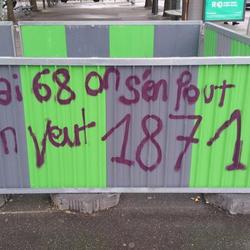 ai 68 on s'en fout
n veut 1871